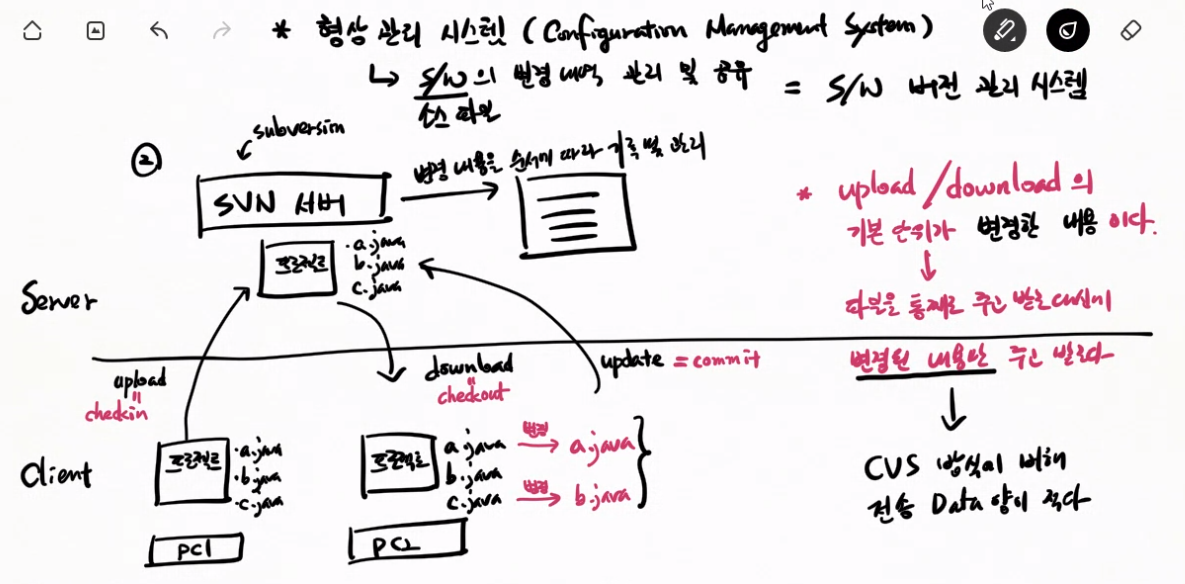 * 형상 관리 시스템 (Configuration Management System)
↳ S/W의 변경 내역 관리 및 공유 = S/W 버전 관리 시스템
소스 파일
subversion
②
변경 내용을 순서에 따라 기록 및 관리
SVN 서버
* upload/download의
기본 단위가 변경한 내용이다.
↓
파일을 통째로 주고 받는 대신에
변경된 내용만 주고 받는다
↓
CVS 방식에 비해
전송 Data 양이 적다
프로젝트
·a.java
b.java
c.java
Server
upload
=
checkin
download
=
checkout
update = commit
Client
프로젝트
·a.java
·b.java
·c.java
PC1
프로젝트
a.java 변경 → a.java
b.java
c.java 변경 → b.java
PC2